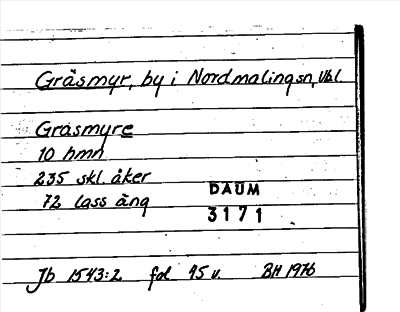 Gräsmyr, by i Nordmalings sn, Vbl.
Grasmyre
10 hmn
235 skl. åker
72 lass äng
DAUM
3171
Jb 1543:2 fol 45 v. BH 1976